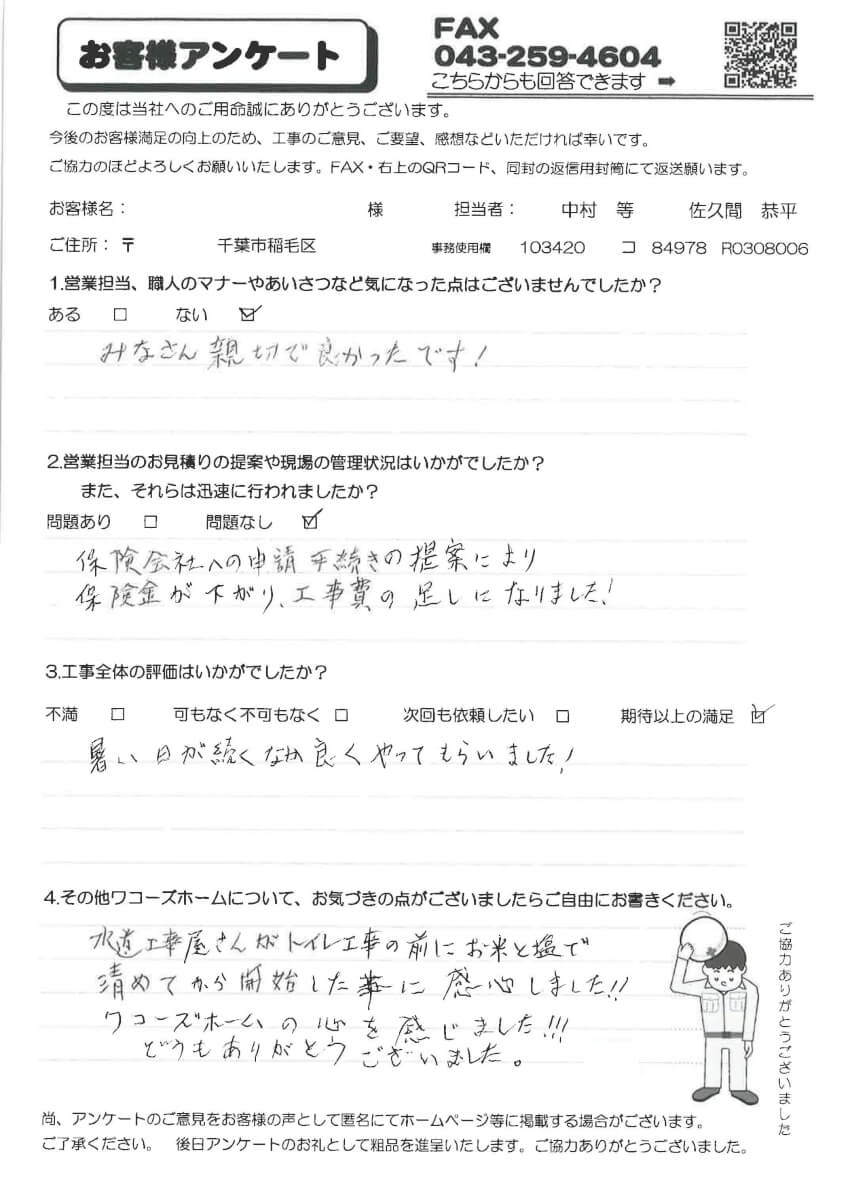 お客様アンケート
FAX
043-259-4604
こちらからも回答できます ➡
この度は当社へのご用命誠にありがとうございます。
今後のお客様満足の向上のため、工事のご意見、ご要望、感想などいただければ幸いです。
ご協力のほどよろしくお願いいたします。FAX・右上のQRコード、同封の返信用封筒にて返送願います。
お客様名： 様 担当者： 中村 等 佐久間 恭平
ご住所：〒 千葉市稲毛区 事務使用欄 103420 コ 84978 R0308006
1.営業担当、職人のマナーやあいさつなど気になった点はございませんでしたか？
ある □ ない ☑
みなさん親切で良かったです！
2.営業担当のお見積りの提案や現場の管理状況はいかがでしたか？
また、それらは迅速に行われましたか？
問題あり □ 問題なし ☑
保険会社への申請手続きの提案により
保険金が下がり、工事費の足しになりました！
3.工事全体の評価はいかがでしたか？
不満 □ 可もなく不可もなく □ 次回も依頼したい □ 期待以上の満足 ☑
暑い日が続くなか良くやってもらいました！
4.その他ワコーズホームについて、お気づきの点がございましたらご自由にお書きください。
水道工事屋さんがトイレ工事の前にお米と塩で
清めてから開始した事に感心しました!!
ワコーズホームの心を感じました!!!
どうもありがとうございました。
ご協力ありがとうございました
尚、アンケートのご意見をお客様の声として匿名にてホームページ等に掲載する場合がございます。
ご了承ください。 後日アンケートのお礼として粗品を進呈いたします。ご協力ありがとうございました。